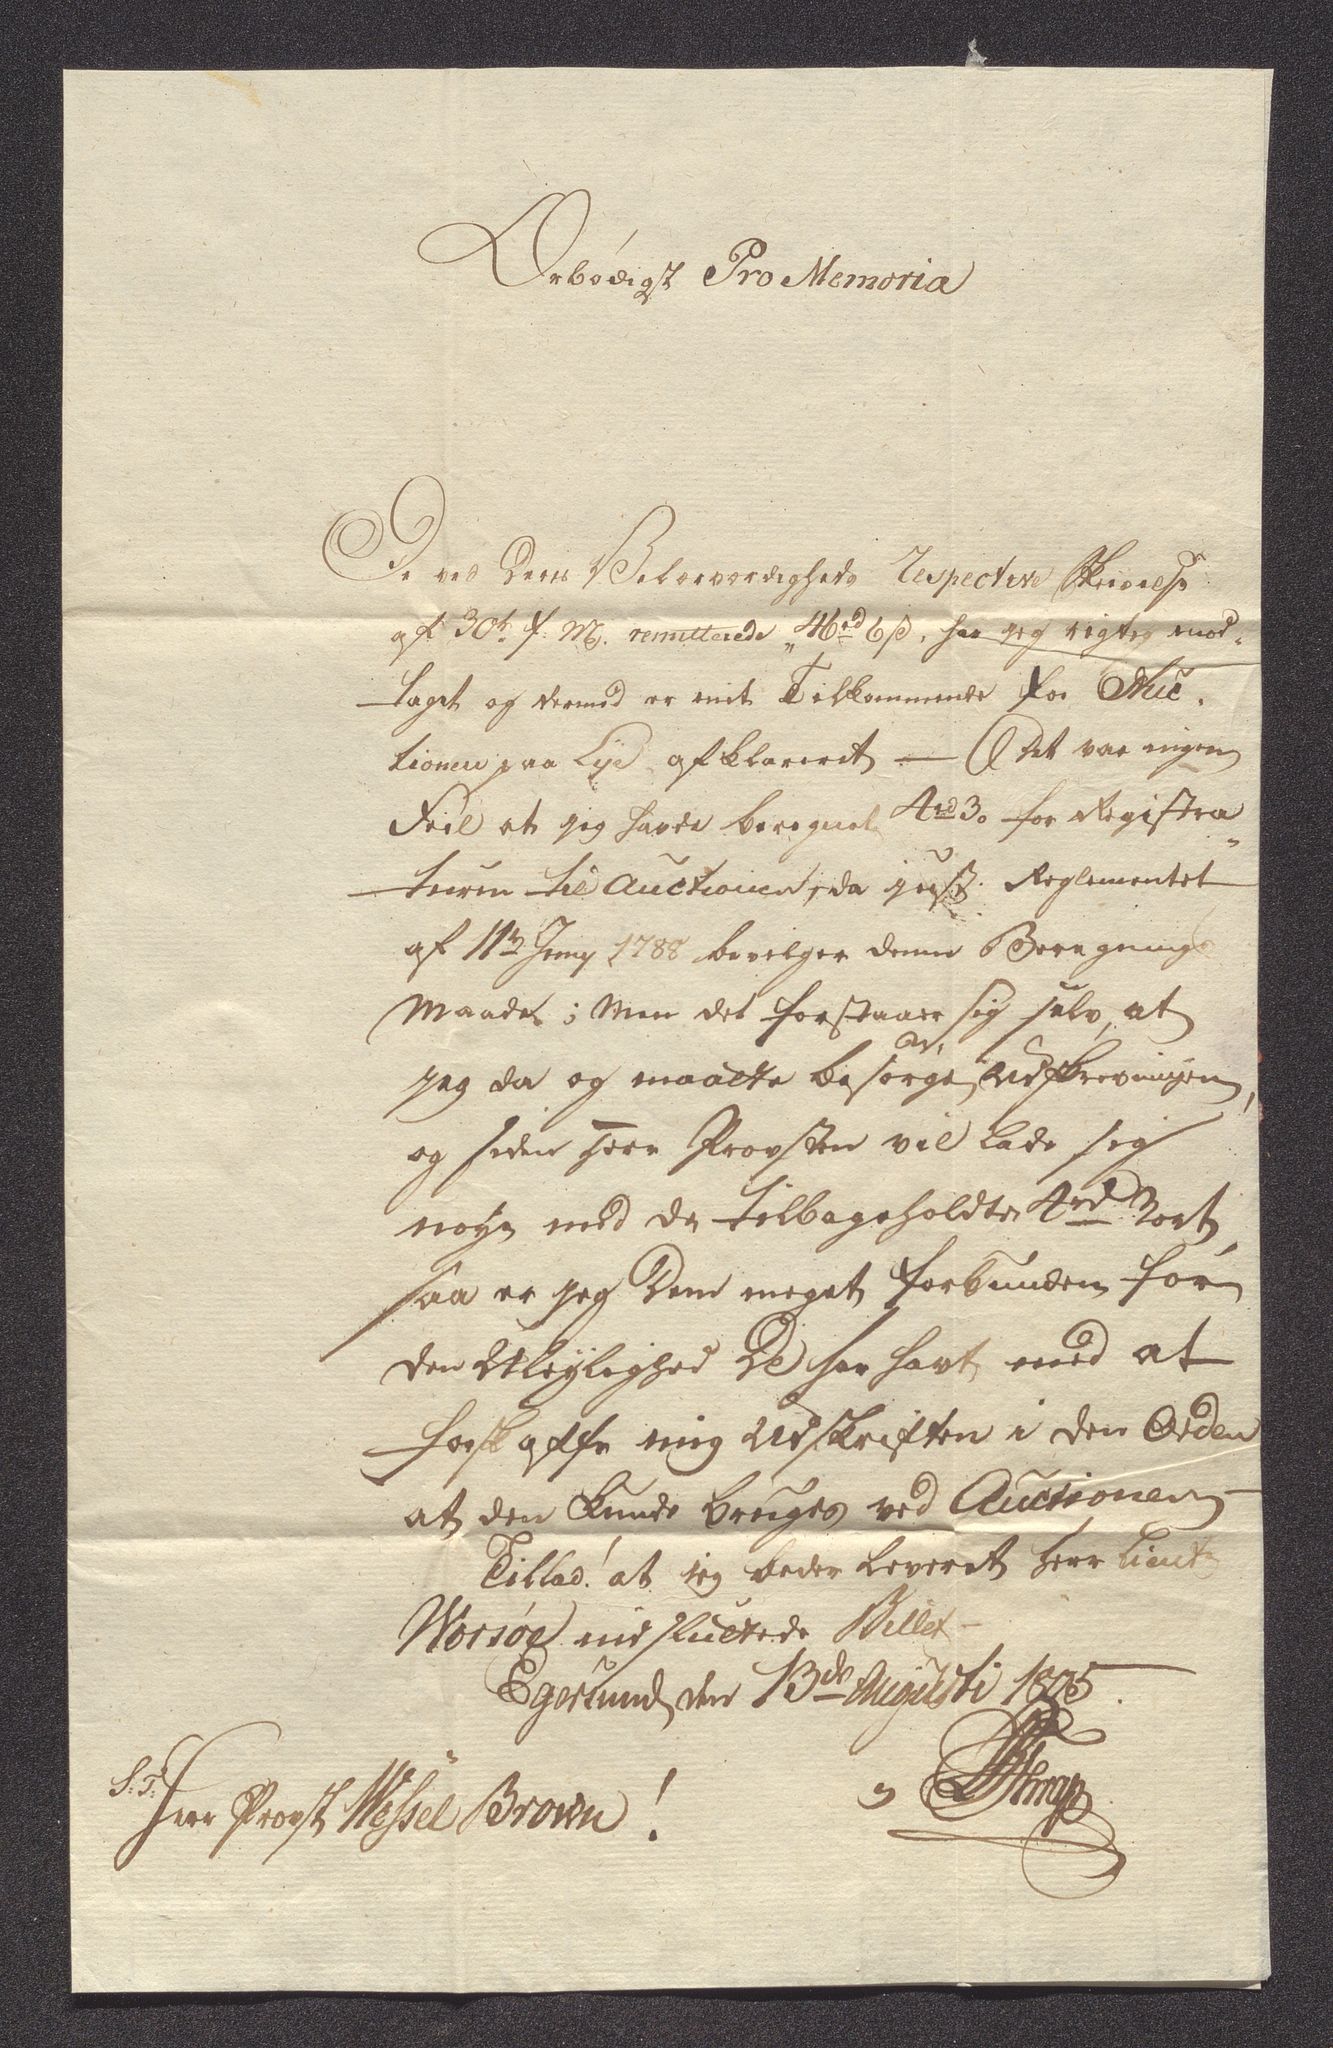 Ærbødigst Pro Memoria
De ved Deres Velærværdigheds respective Skrivelse
af 30te f. M. remitterede 46rd 6ß, har jeg rigtig mod-
taget og dermed er mit Tilkommende for Auc-
tionen paa Lye afklareret — Det var ingen
Feil at jeg havde beregnet 4rd 3o for Registra-
turen til Auctionen, da just Reglementet
af 11te 1788 bevilger denne Beregnings
Maade; Men det forstaaer sig selv, at
jeg da og maatte besørge Udskrevningen,
og siden Herr Provsten vil lade sig
nøye med de tilbageholdte 4rd 3ort,
saa er jeg Dem meget forbunden for
den Uleylighed De har havt med at
forskaffe mig Udskriften i den Orden
at den kunde bruges ved Auctionen
Tillad! at jeg beder leveret Herr Lieut:
Worsøe indsluttede Billet -
Egersund den 13de Augusti 1805.
S. T.
Herr Provst Wessel Brown!